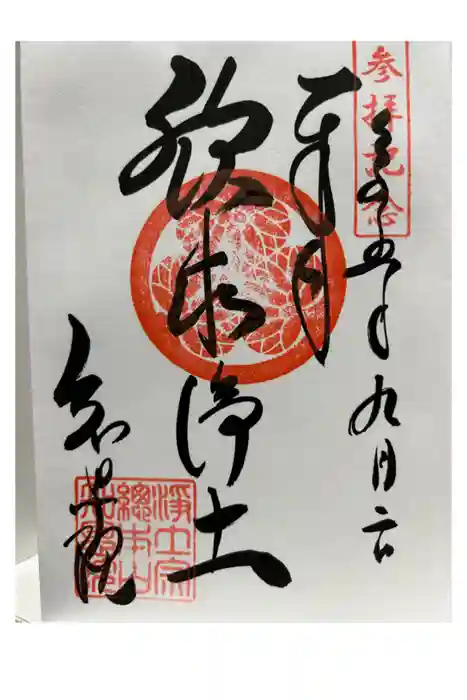 参拝記念
令和五年九月
奉拝
欣求浄土
知恩院
淨土宗
總本山
知恩院